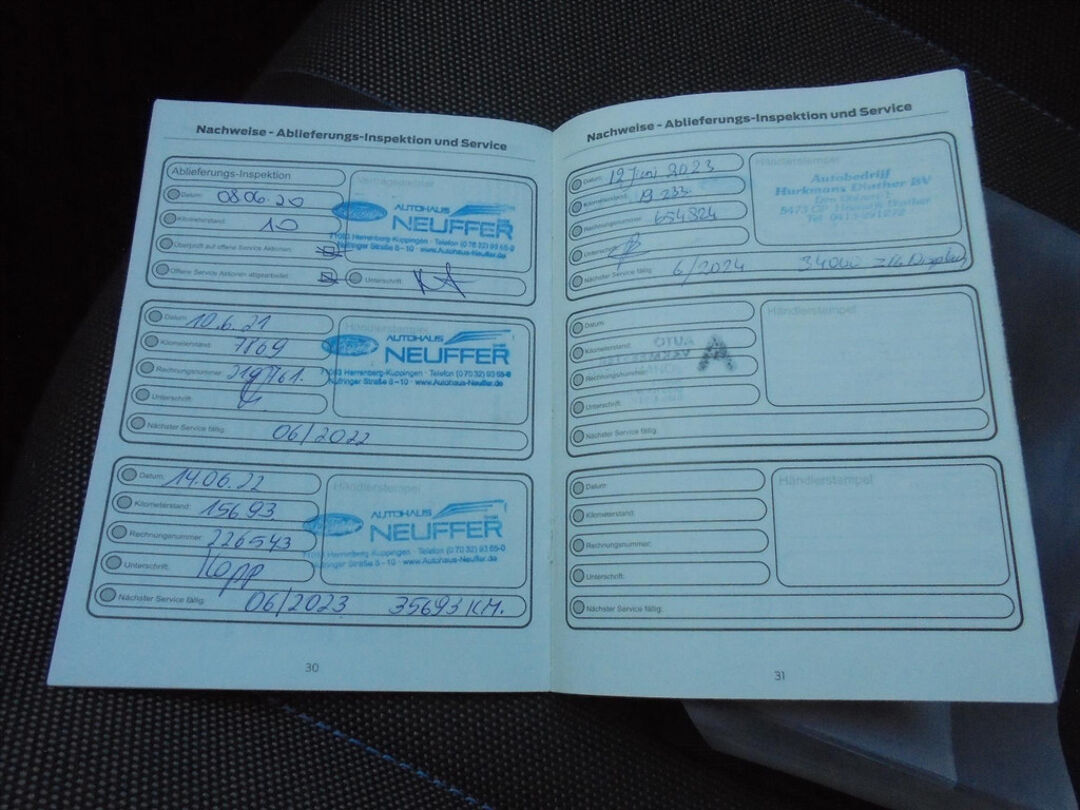 Nachweise - Ablieferungs-Inspektion und Service
Ablieferungs-Inspektion
Datum: 08.06.20
Kilometerstand: 10
Überprüft auf offene Service Aktionen:
Offene Service Aktionen abgearbeitet:
Unterschrift:
AUTOHAUS
NEUFFER
71083 Herrenberg-Kuppingen · Telefon (0 70 32) 93 65-0
Nufringer Straße 8-10 · www.Autohaus-Neuffer.de
Datum: 10.6.21
Kilometerstand: 7169
Rechnungsnummer:
Unterschrift:
Nächster Service fällig: 06/2022
Händlerstempel
AUTOHAUS
NEUFFER
71083 Herrenberg-Kuppingen · Telefon (0 70 32) 93 65-0
Nufringer Straße 8-10 · www.Autohaus-Neuffer.de
Datum: 14.06.22
Kilometerstand: 15693
Rechnungsnummer: 226543
Unterschrift: Kopp
Nächster Service fällig: 06/2023 35693 KM.
Händlerstempel
AUTOHAUS
NEUFFER
71083 Herrenberg-Kuppingen · Telefon (0 70 32) 93 65-0
Nufringer Straße 8-10 · www.Autohaus-Neuffer.de
30
Nachweise - Ablieferungs-Inspektion und Service
Datum: 12 Juni 2023
Kilometerstand: 19.233
Rechnungsnummer: 654324
Unterschrift:
Nächster Service fällig: 6/2024 34000 Display
Händlerstempel
Autobedrijf
Hurkmans Dinther BV
Datum:
Kilometerstand:
Rechnungsnummer:
Unterschrift:
Nächster Service fällig:
Händlerstempel
Datum:
Kilometerstand:
Rechnungsnummer:
Unterschrift:
Nächster Service fällig:
Händlerstempel
31